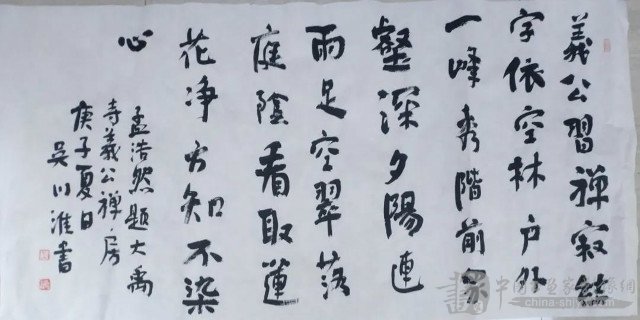 義公習禅寂結
宇依空林户外
一峰秀階前
壑深夕陽連
雨足空翠落
庭陰看取蓮
花净方知不染
心
孟浩然题大禹
寺義公禅房
庚子夏日
吴川淮書